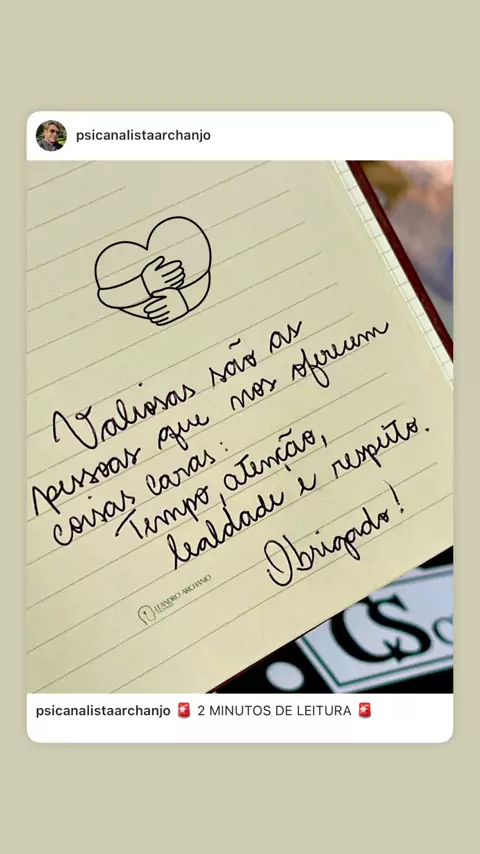 psicanalistaarchanjo
Valiosas são as
pessoas que nos oferecem
coisas caras:
Tempo, atenção,
lealdade e respeito.
Obrigado!
LEANDRO ARCHANJO
CS
psicanalistaarchanjo 🚨 2 MINUTOS DE LEITURA 🚨